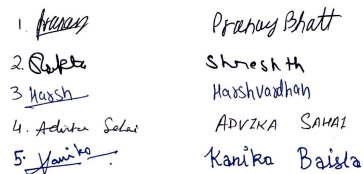 1. Pranav Pranay Bhatt
2. Shreshth
3 Harsh Harshvardhan
4. Advika Sahai ADVIKA SAHAI
5. Kanika Kanika Baisla